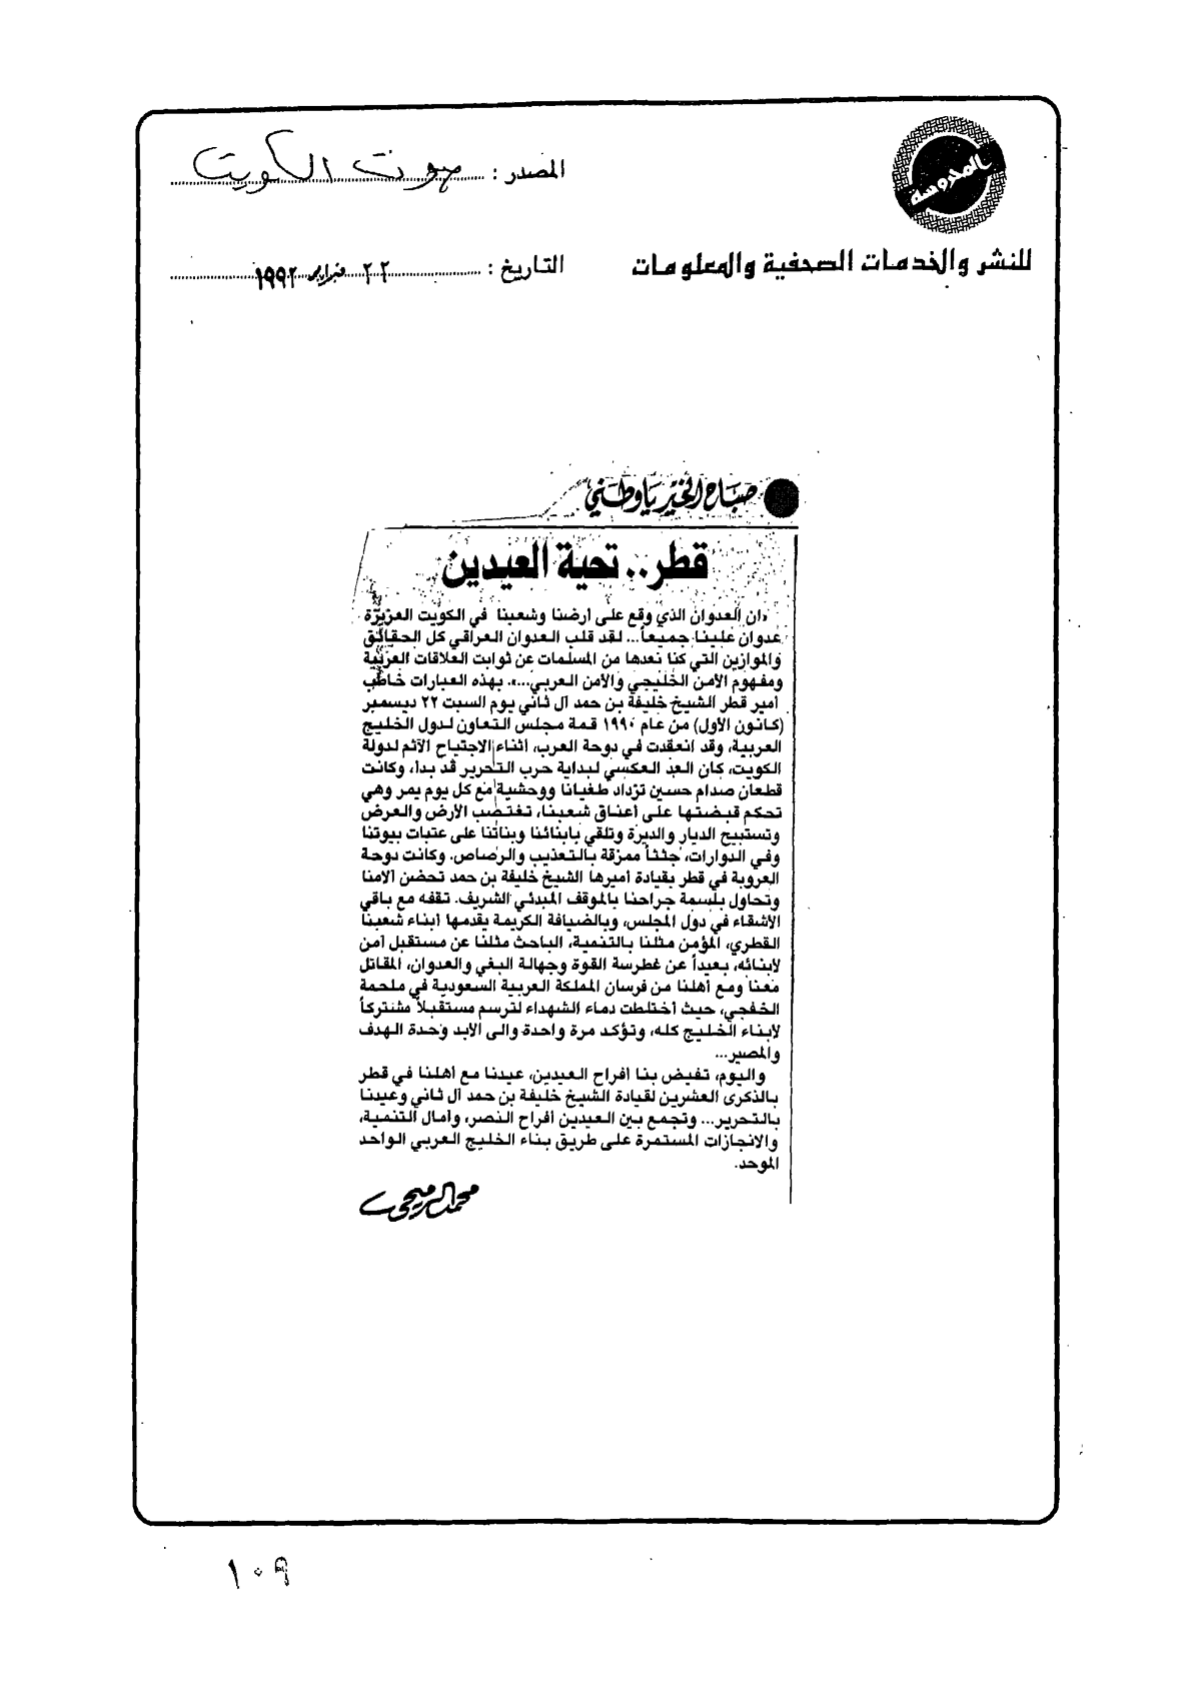 المحروسة
المصدر : صوت الكويت
للنشر والخدمات الصحفية والمعلومات
التاريخ : ٢٢ فبراير ١٩٩٢
صباح الخير يا وطني
قطر.. تحية العيدين
«ان العدوان الذي وقع على أرضنا وشعبنا في الكويت العزيزة
عدوان علينا جميعاً... لقد قلب العدوان العراقي كل الحقائق
والموازين التي كنا نعدها من المسلمات عن ثوابت العلاقات العربية
ومفهوم الأمن الخليجي والأمن العربي...». بهذه العبارات خاطب
أمير قطر الشيخ خليفة بن حمد آل ثاني يوم السبت ٢٢ ديسمبر
(كانون الأول) من عام ١٩٩٠ قمة مجلس التعاون لدول الخليج
العربية، وقد انعقدت في دوحة العرب، أثناء الاجتياح الآثم لدولة
الكويت، كان العد العكسي لبداية حرب التحرير قد بدأ، وكانت
قطعان صدام حسين تزداد طغيانا ووحشية مع كل يوم يمر وهي
تحكم قبضتها على أعناق شعبنا، تغتصب الأرض والعرض
وتستبيح الديار والديرة وتلقي بابنائنا وبناتنا على عتبات بيوتنا
وفي الدوارات، جثثاً ممزقة بالتعذيب والرصاص. وكانت دوحة
العروبة في قطر بقيادة أميرها الشيخ خليفة بن حمد تحضن آلامنا
وتحاول بلسمة جراحنا بالموقف المبدئي الشريف. تقفه مع باقي
الأشقاء في دول المجلس، وبالضيافة الكريمة يقدمها أبناء شعبنا
القطري، المؤمن مثلنا بالتنمية، الباحث مثلنا عن مستقبل آمن
لابنائه، بعيداً عن غطرسة القوة وجهالة البغي والعدوان، المقاتل
معنا ومع أهلنا من فرسان المملكة العربية السعودية في ملحمة
الخفجي، حيث أختلطت دماء الشهداء لترسم مستقبلاً مشتركاً
لابناء الخليج كله، وتؤكد مرة واحدة والى الأبد وحدة الهدف
والمصير...
واليوم، تفيض بنا أفراح العيدين، عيدنا مع أهلنا في قطر
بالذكرى العشرين لقيادة الشيخ خليفة بن حمد آل ثاني وعيدنا
بالتحرير... وتجمع بين العيدين أفراح النصر، وآمال التنمية،
والانجازات المستمرة على طريق بناء الخليج العربي الواحد
الموحد.
محمد الرميحي
١٠٩